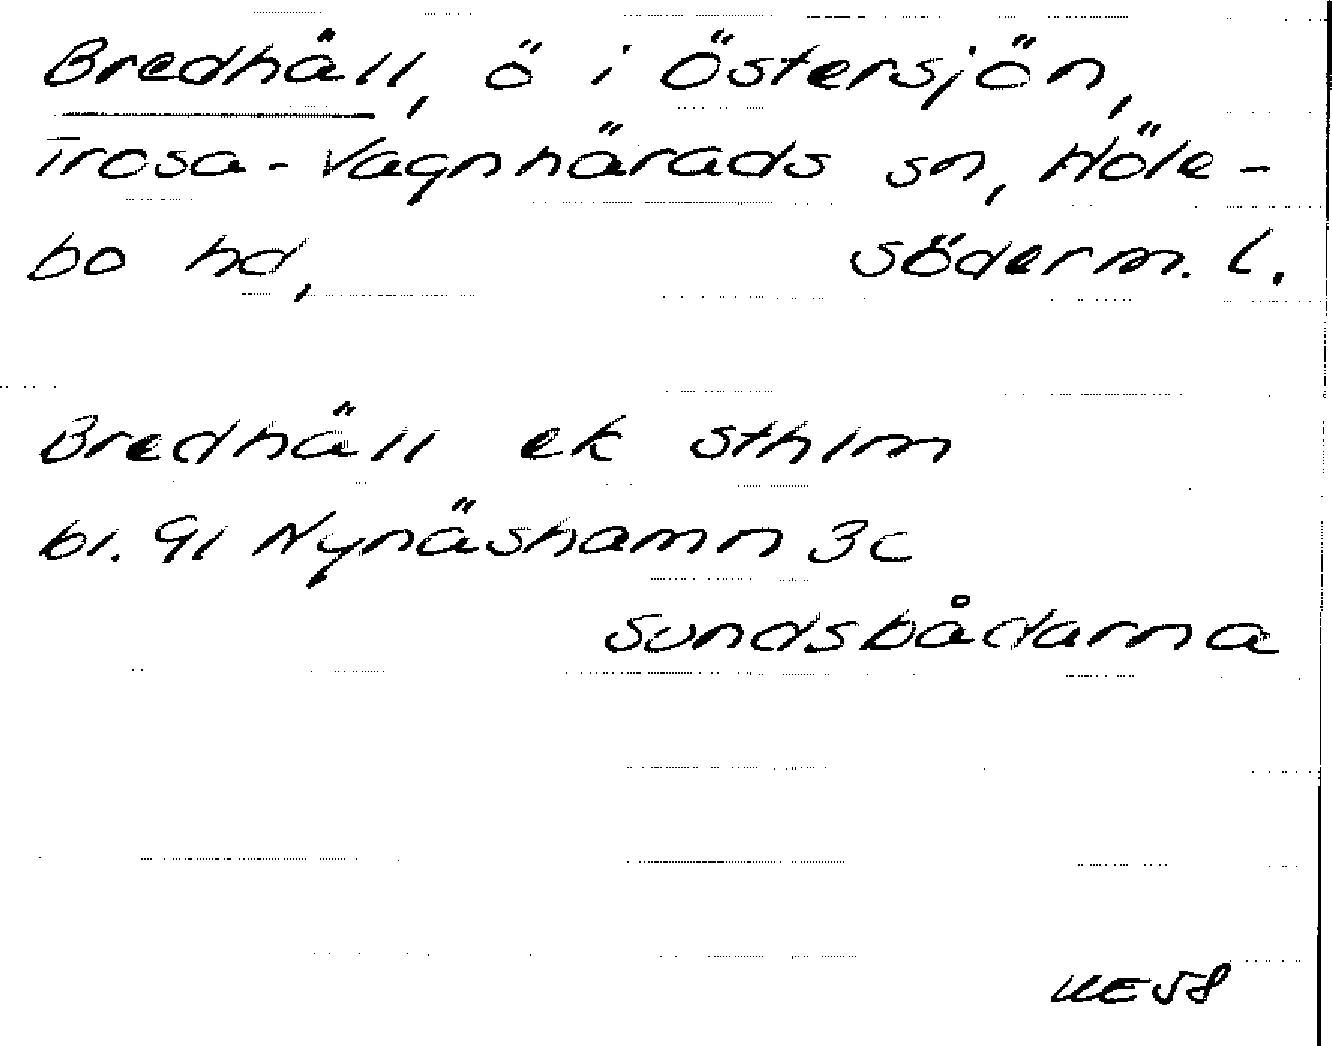 Bredhåll, ö i Östersjön,
Trosa-Vagnhärads sn, Höle-
bo hd, Söderm. l.
Bredhåll ek Sthlm
bl. 91 Nynäshamn 3c
Sundsbådarna
UE 58